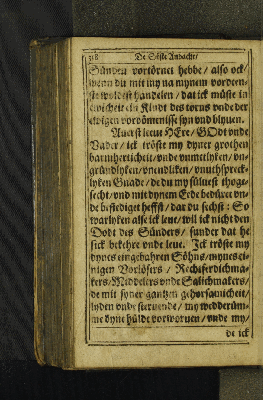 318 De Söste Andacht/
Sünden vortörnet hebbe / also ock/
wenn du mit my na mynem vordeen-
ste woldest handelen / dat ick müste in
ewicheit ein Kindt des torns vnde der
ewigen vordömnisse syn vnd blyuen.
Auerst leeue HEre / GOdt vnde
Vader / ick tröste my dyner grothen
barmherticheit / vnde vnmetlyken / vn-
gründlyken / vnendliken / vnuthspreck-
lyken Gnade / de du my süluest thoge-
secht / vnd mit dynem Eede bedüret vn-
de befestiget heffst / dar du sechst: So
warlyken alse ick leue / wil ick nicht den
Dodt des Sünders / sunder dat he
sick bekehre vnde leue. Ick tröste my
dynes eingebahren Söhns / mynes ei-
nigen Vorlösers / Rechtferdichma-
kers / Middelers vnde Salichmakers /
de mit syner gantzen gehorsamicheit /
lyden vnde steruende / my wedderüm-
me dyne hülde vorworuen / vnde my /
de ick